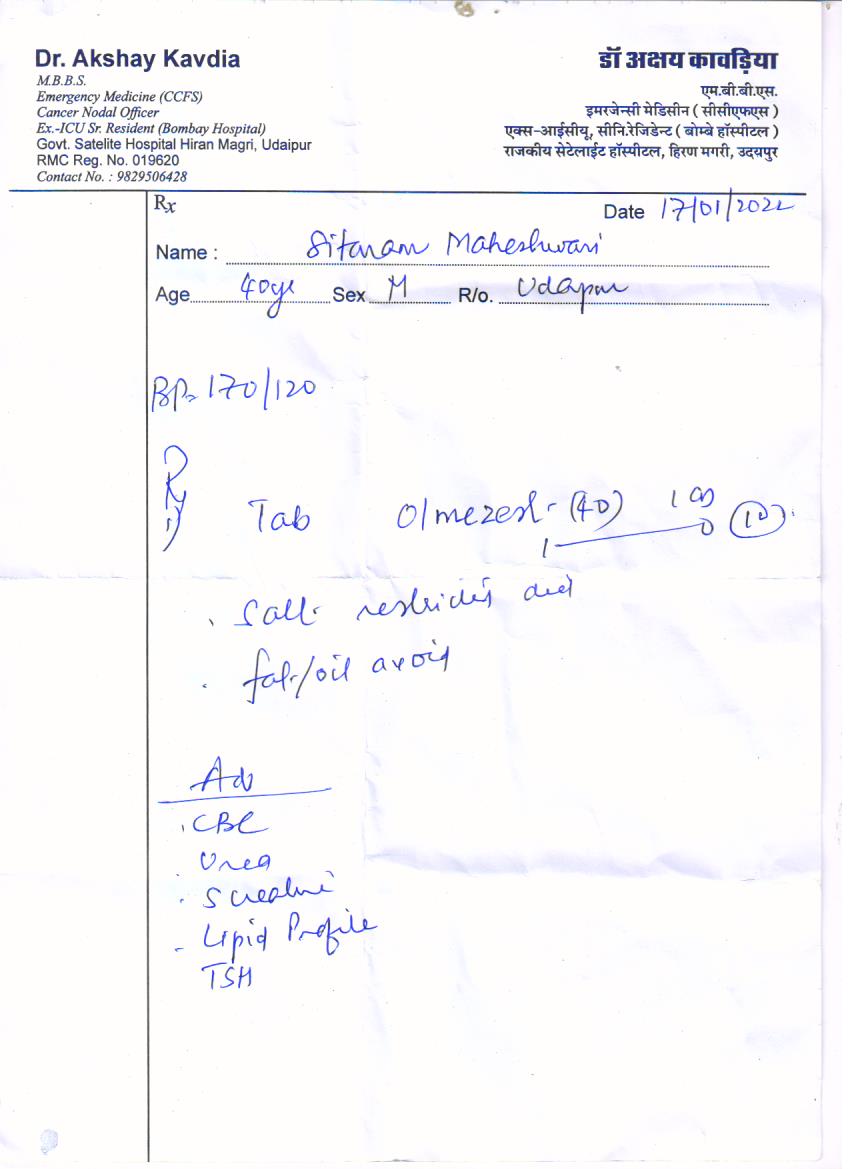 Dr. Akshay Kavdia
M.B.B.S.
Emergency Medicine (CCFS)
Cancer Nodal Officer
Ex.-ICU Sr. Resident (Bombay Hospital)
Govt. Satelite Hospital Hiran Magri, Udaipur
RMC Reg. No. 019620
Contact No. : 9829506428
डॉ अक्षय कावड़िया
एम.बी.बी.एस.
इमरजेन्सी मेडिसीन ( सीसीएफएस )
एक्स-आईसीयू, सीनि.रेजिडेन्ट ( बोम्बे हॉस्पीटल )
राजकीय सेटेलाईट हॉस्पीटल, हिरण मगरी, उदयपुर
Rx
Date 17/01/2022
Name : Sitaram Maheshwari
Age 40yr Sex M R/o. Udaipur
BP- 170/120
Rx
1) Tab Olmezest- (40) 1 OD
1 0 (10)
. Salt- restricted diet
. fat/oil avoid
Adv
. CBC
. Urea
. S creatini
- Lipid Profile
TSH